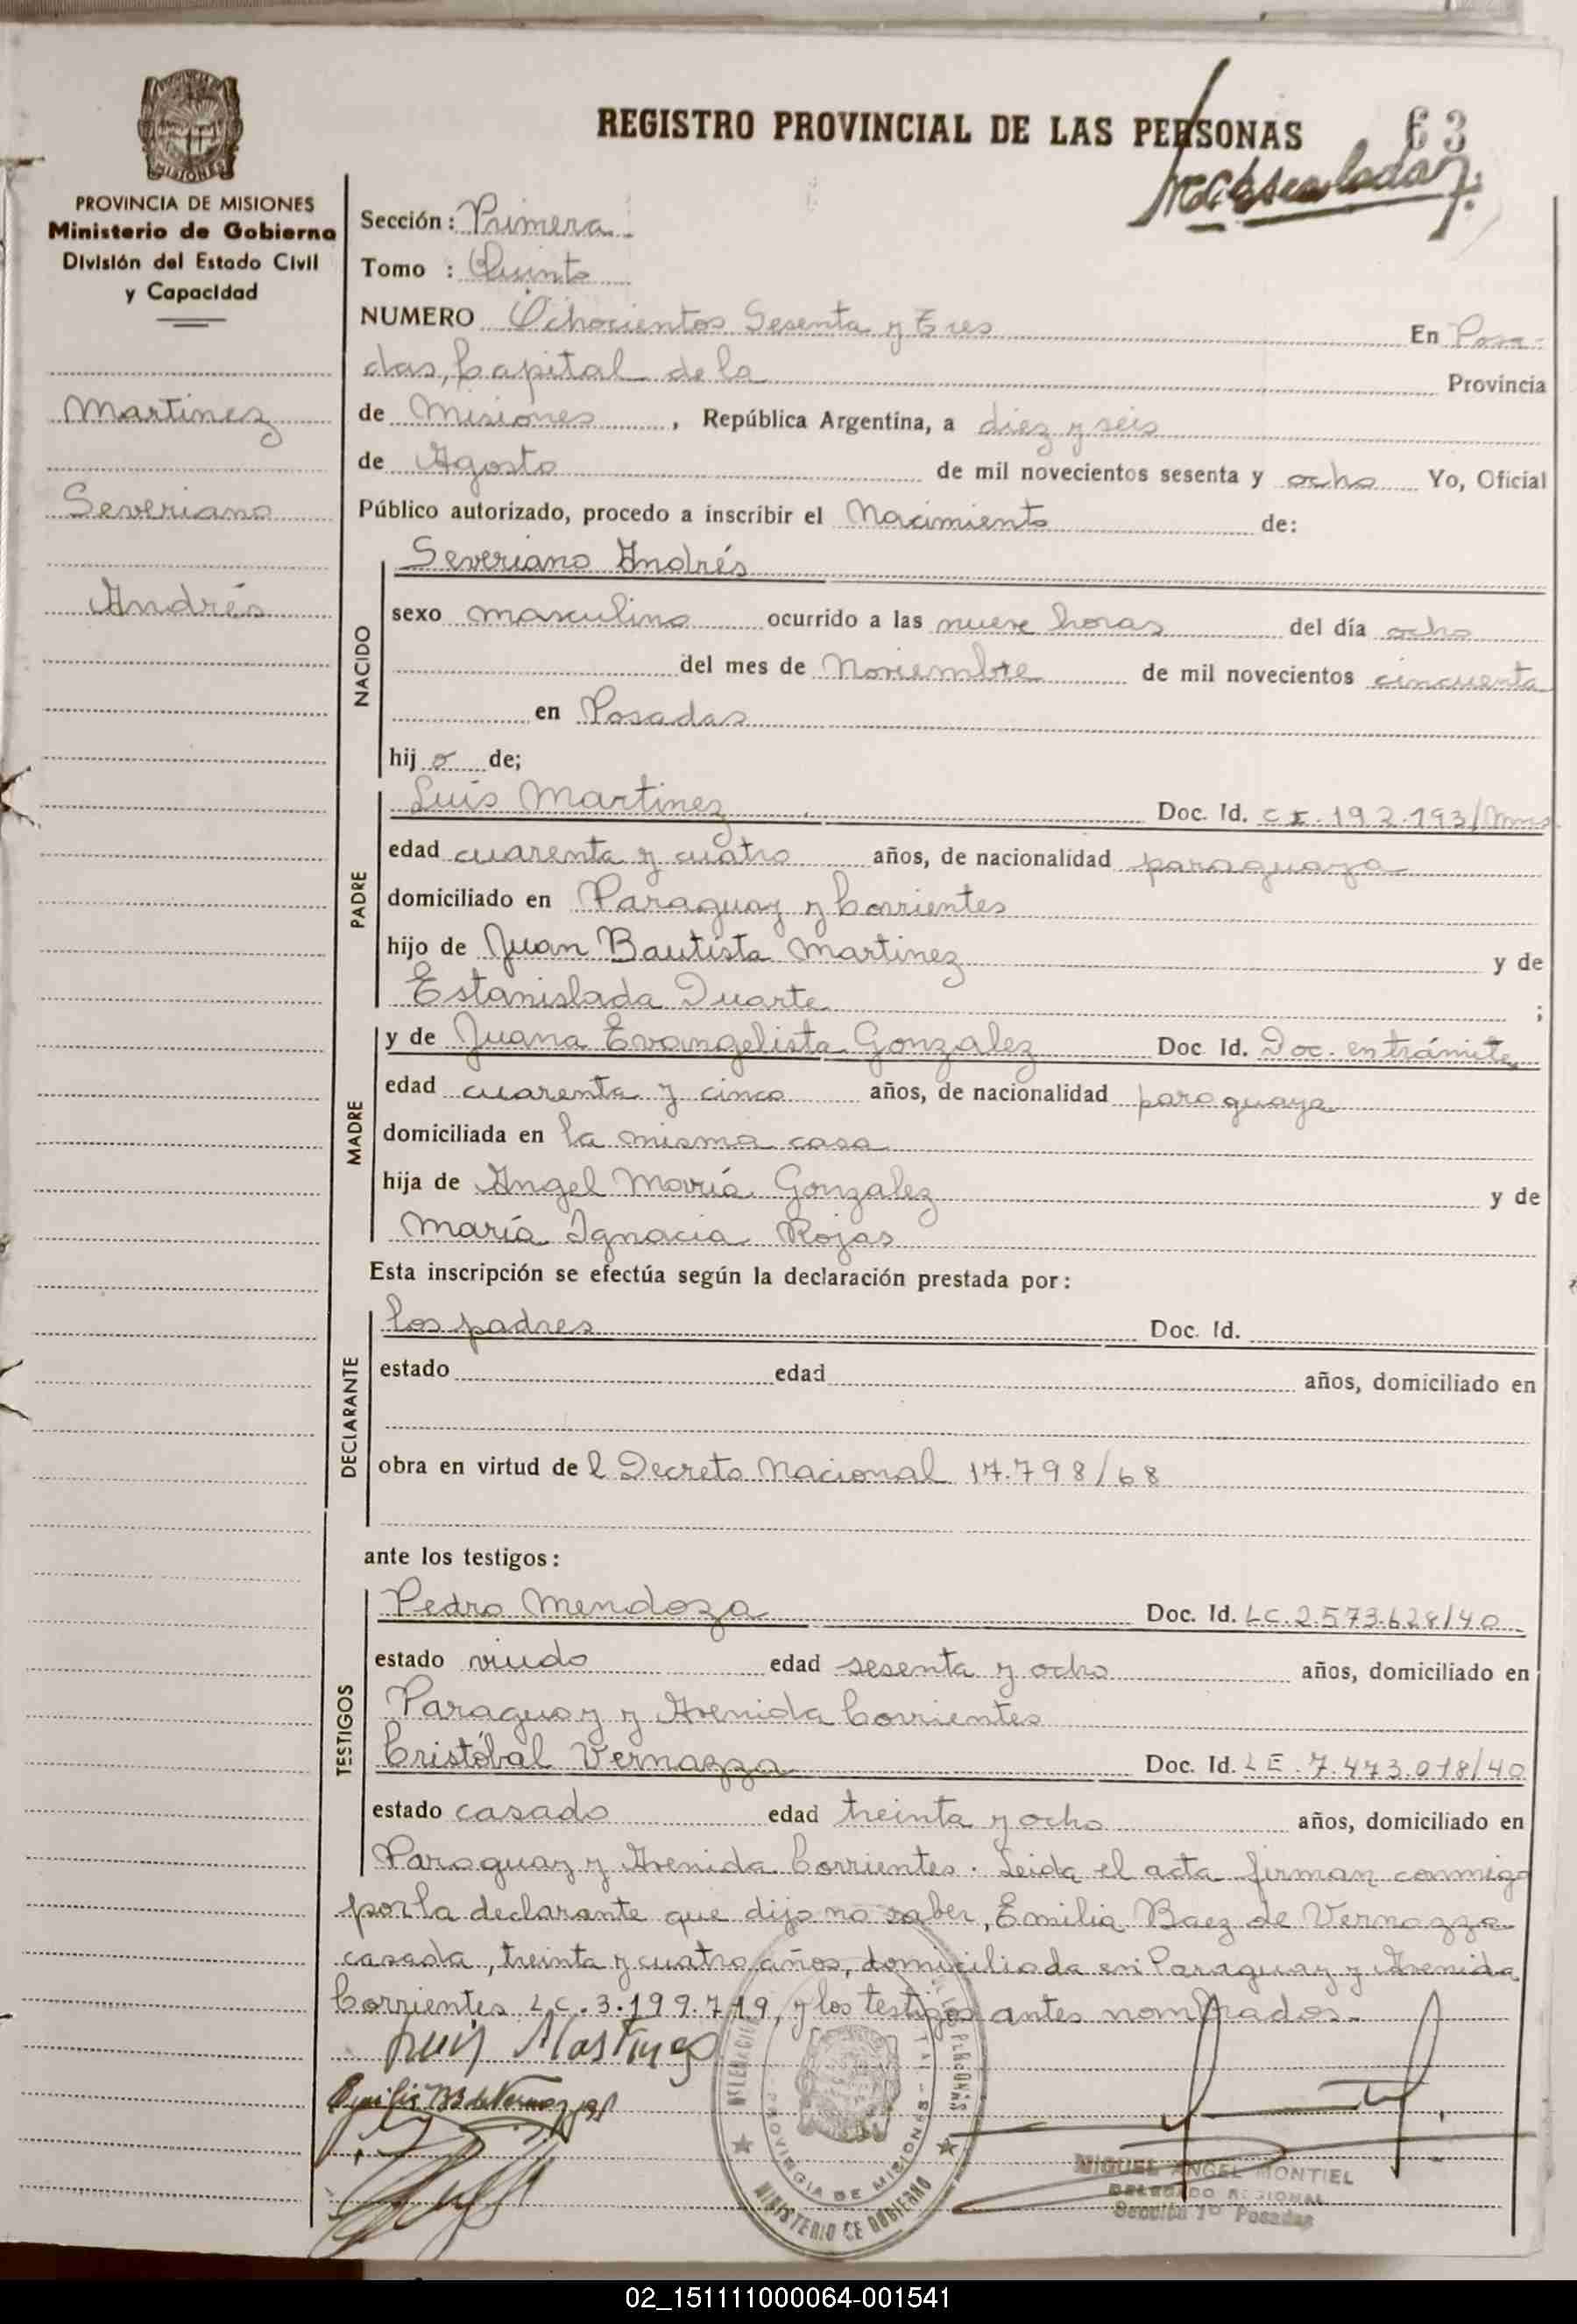 REGISTRO PROVINCIAL DE LAS PERSONAS
63
PROVINCIA DE MISIONES
Ministerio de Gobierno
División del Estado Civil
y Capacidad
Martinez
Severiano
Andrés
Sección: Primera
Tomo : Quinto
NUMERO Ochocientos Sesenta y Tres En Posa-
das, Capital de la Provincia
de Misiones, República Argentina, a diez y seis
de Agosto de mil novecientos sesenta y ocho Yo, Oficial
Público autorizado, procedo a inscribir el Nacimiento de:
NACIDO
Severiano Andrés
sexo masculino ocurrido a las nueve horas del día ocho
del mes de Noviembre de mil novecientos cincuenta
en Posadas
hij o de;
PADRE
Luis Martinez Doc. Id. C I. 192.193/Mnes.
edad cuarenta y cuatro años, de nacionalidad paraguaya
domiciliado en Paraguay y Corrientes
hijo de Juan Bautista Martinez y de
Estanislada Duarte ;
MADRE
y de Juana Evangelista Gonzalez Doc. Id. Doc. en trámite
edad cuarenta y cinco años, de nacionalidad paraguaya
domiciliada en la misma casa
hija de Angel María Gonzalez y de
María Ignacia Rojas
Esta inscripción se efectúa según la declaración prestada por:
DECLARANTE
los padres Doc. Id.
estado edad años, domiciliado en
obra en virtud de l Decreto Nacional 17.798/68
ante los testigos:
TESTIGOS
Pedro Mendoza Doc. Id. LC. 2.573.628/40
estado viudo edad sesenta y ocho años, domiciliado en
Paraguay y Avenida Corrientes
Cristóbal Vernazza Doc. Id. L E. 7.473.018/40
estado casado edad treinta y ocho años, domiciliado en
Paraguay y Avenida Corrientes. Leida el acta firman conmigo
por la declarante que dijo no saber, Emilia Baez de Vernazza
casada, treinta y cuatro años, domiciliada en Paraguay y Avenida
Corrientes L.C. 3.199.719, y los testigos antes nombrados.-
Luis Martinez
Emilia B de Vernazza
PROVINCIA DE MISIONES
MINISTERIO DE GOBIERNO
MIGUEL ANGEL MONTIEL
DELEGADO REGIONAL
Sección 1º Posadas
02_151111000064-001541